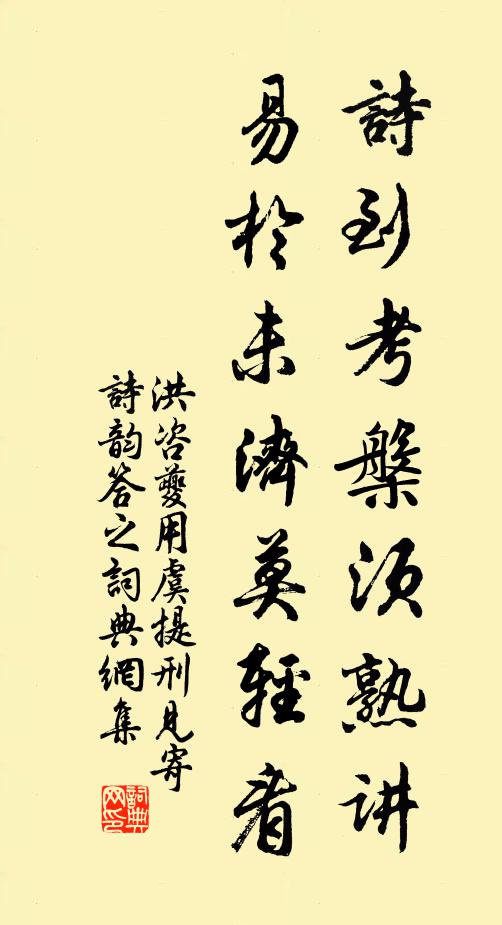 詩到考槃須熟讲
易於未濟莫輕看
洪咨夔用虞提刑見寄
詩韵答之詞典網集
詞典网印